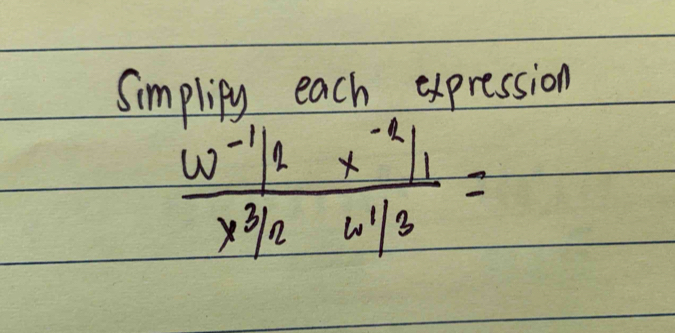 Simplify each expression
w^-1/2 x^-2/1 =
x^3/2 w^1/3